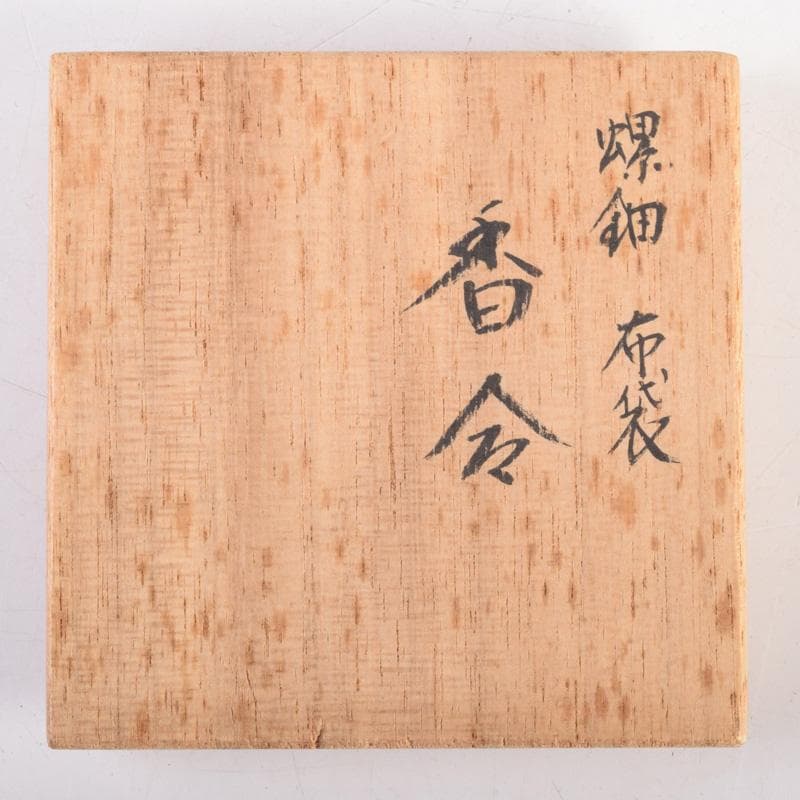 螺鈿 布袋
香合